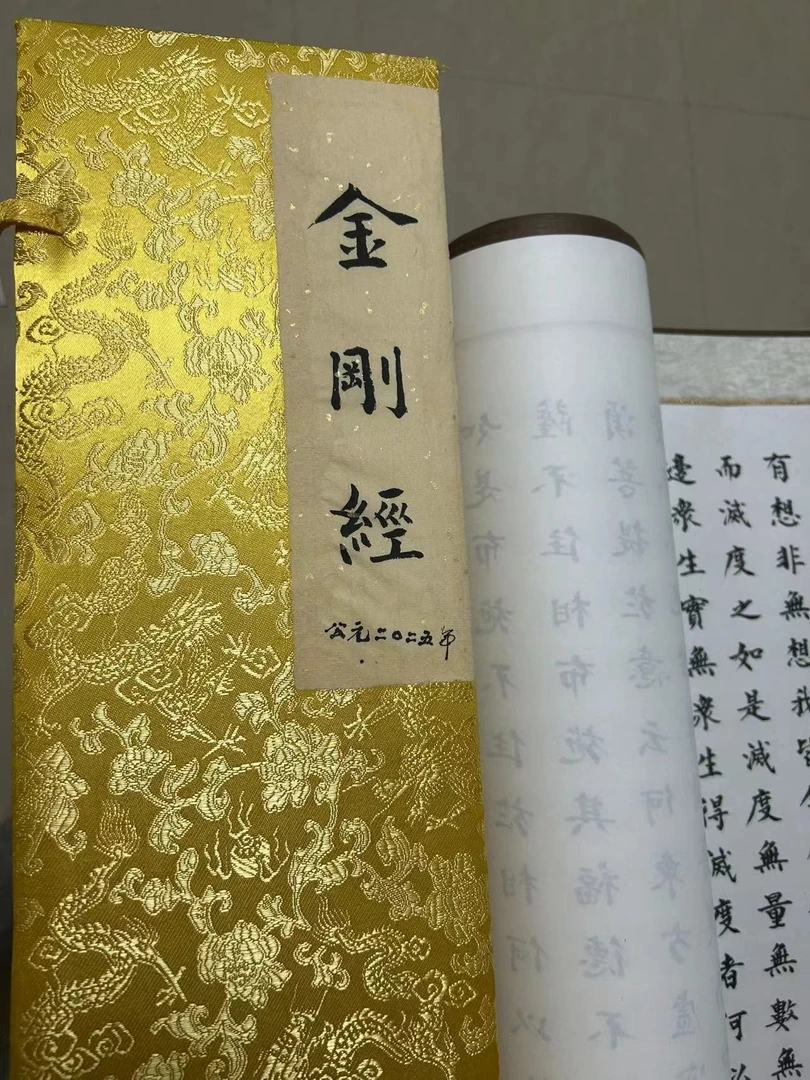 金剛經
公元二〇二五年
有想非無想我皆令
而滅度之如是滅度無量無數無
邊衆生實無衆生得滅度者何以
如是布施不住於相何以
薩不住相布施其福德不
湏菩提於意云何東方虛